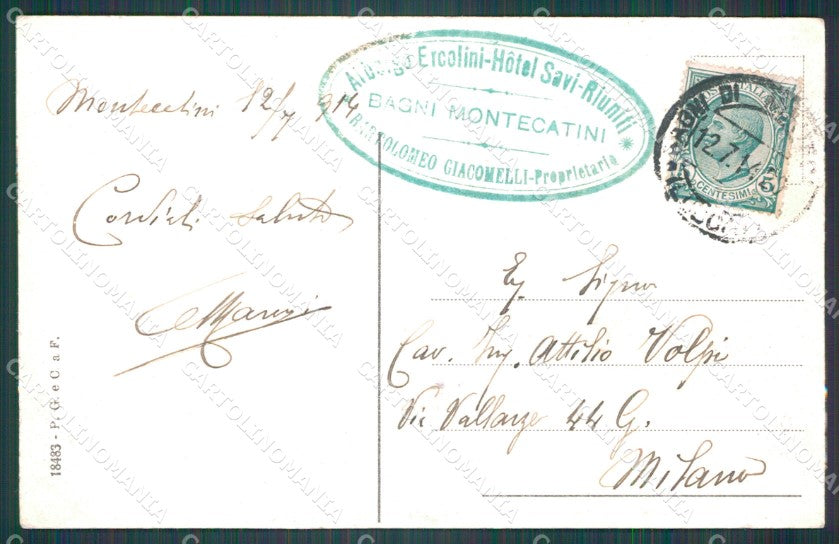 Montecatini 12/7 914
Cordiali saluti
Albergo Ercolini-Hôtel Savi-Riuniti
BAGNI MONTECATINI
BARTOLOMEO GIACOMELLI-Proprietario
BAGNI DI
12.7.14
CENTESIMI 5
Eg. Signor
Cav. Ing. Attilio Volpi
Via Vallazze 44 G.
Milano
18483 - P. G. e C. a F.
CARTOLINOMANIA